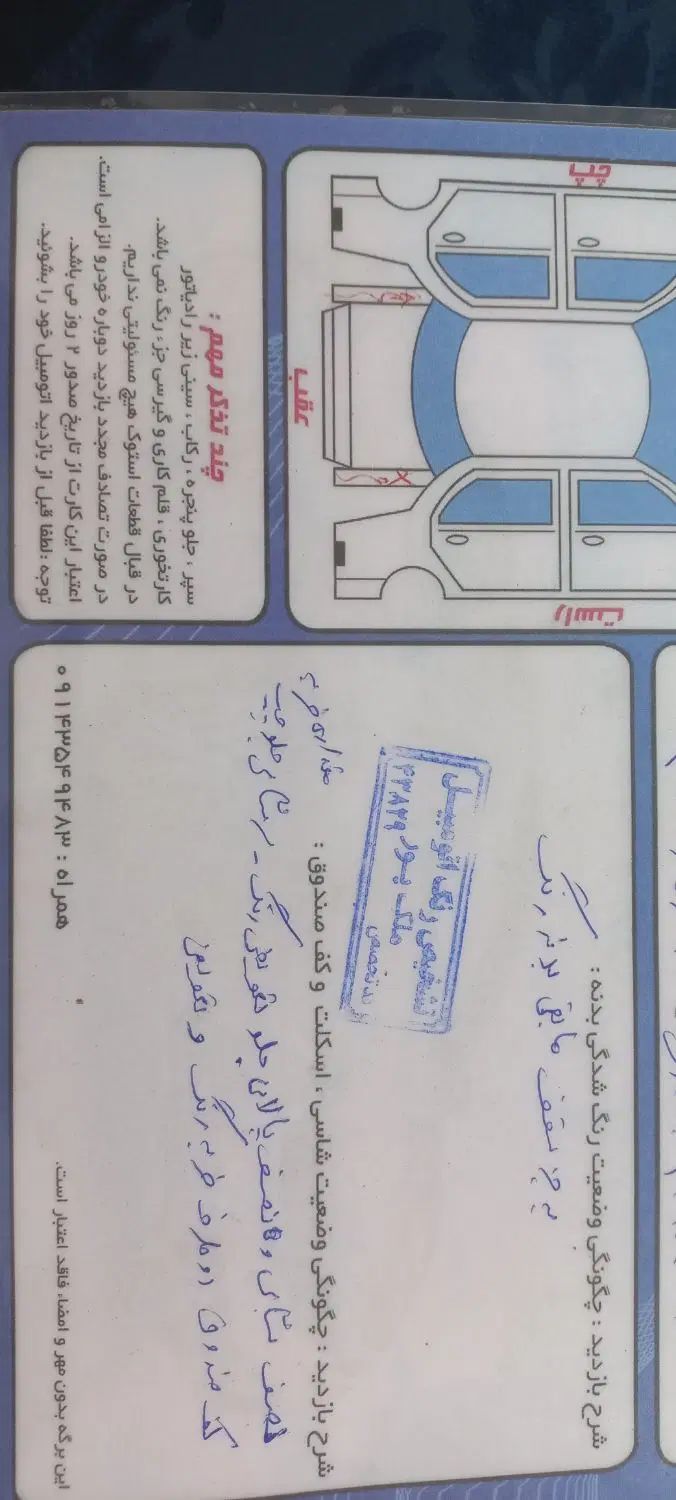 چپ
راست
عقب
چند تذکر مهم :
سپر ، جلو پنجره ، رکاب ، سینی زیر رادیاتور
کارتخوری ، قلم کاری و گیرسی جزء رنگ نمی باشد.
در قبال قطعات استوک هیچ مسئولیتی نداریم.
در صورت تصادف مجدد بازدید دوباره خودرو الزامی است.
اعتبار این کارت از تاریخ صدور ۲ روز می باشد.
توجه : لطفا قبل از بازدید اتومبیل خود را بشوئید.
شرح بازدید : چگونگی وضعیت رنگ شدگی بدنه :
به جز سقف مابقی بدنه رنگ
تشخیص رنگ اتومبیل
ملک پور
شرح بازدید : چگونگی وضعیت شاسی ، اسکلت و کف صندوق :
نصف بالای جلو تعویض رنگ
کف صندوق دو طرف ضربه رنگ و تعویض
همراه : ۰۹۱۴۳۵۴۹۴۸۳
این برگه بدون مهر و امضاء فاقد اعتبار است.